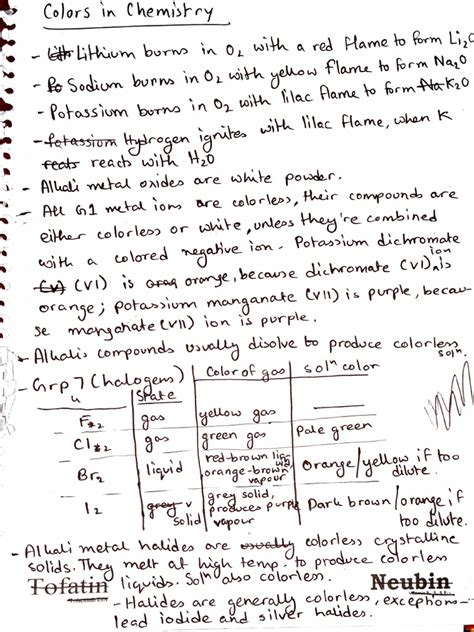 Colors in Chemistry
- Lith Lithium burns in O2 with a red flame to form Li2O
- Po Sodium burns in O2 with yellow flame to form Na2O
- Potassium burns in O2 with lilac flame to form Na K2O
- Potassium Hydrogen ignites with lilac flame, when K
reats reach with H2O
- Alkali metal oxides are white powder.
- All G1 metal ions are colorless, their compounds are
either colorless or white, unless they're combined
with a colored negative ion. Potassium dichromate
(V) (VI) is orag orange, because dichromate (VI) ion is
orange; potassium manganate (VII) is purple, becau-
se manganate (VII) ion is purple.
- Alkalis compounds usually disolve to produce colorless soln.
- Grp 7 (halogens) State Color of gas soln color
F2 gas yellow gas —
Cl2 gas green gas Pale green
Br2 liquid red-brown liq, orange-brown vapour Orange/yellow if too dilute.
I2 grey solid grey solid, produces purple vapour Dark brown/orange if too dilute.
- Alkali metal halides are usually colorless crystalline
solids. They melt at high temp. to produce colorless
Tofatin liquids. Soln also colorless. Neubin
- Halides are generally colorless, exceptions--
lead iodide and silver halides.